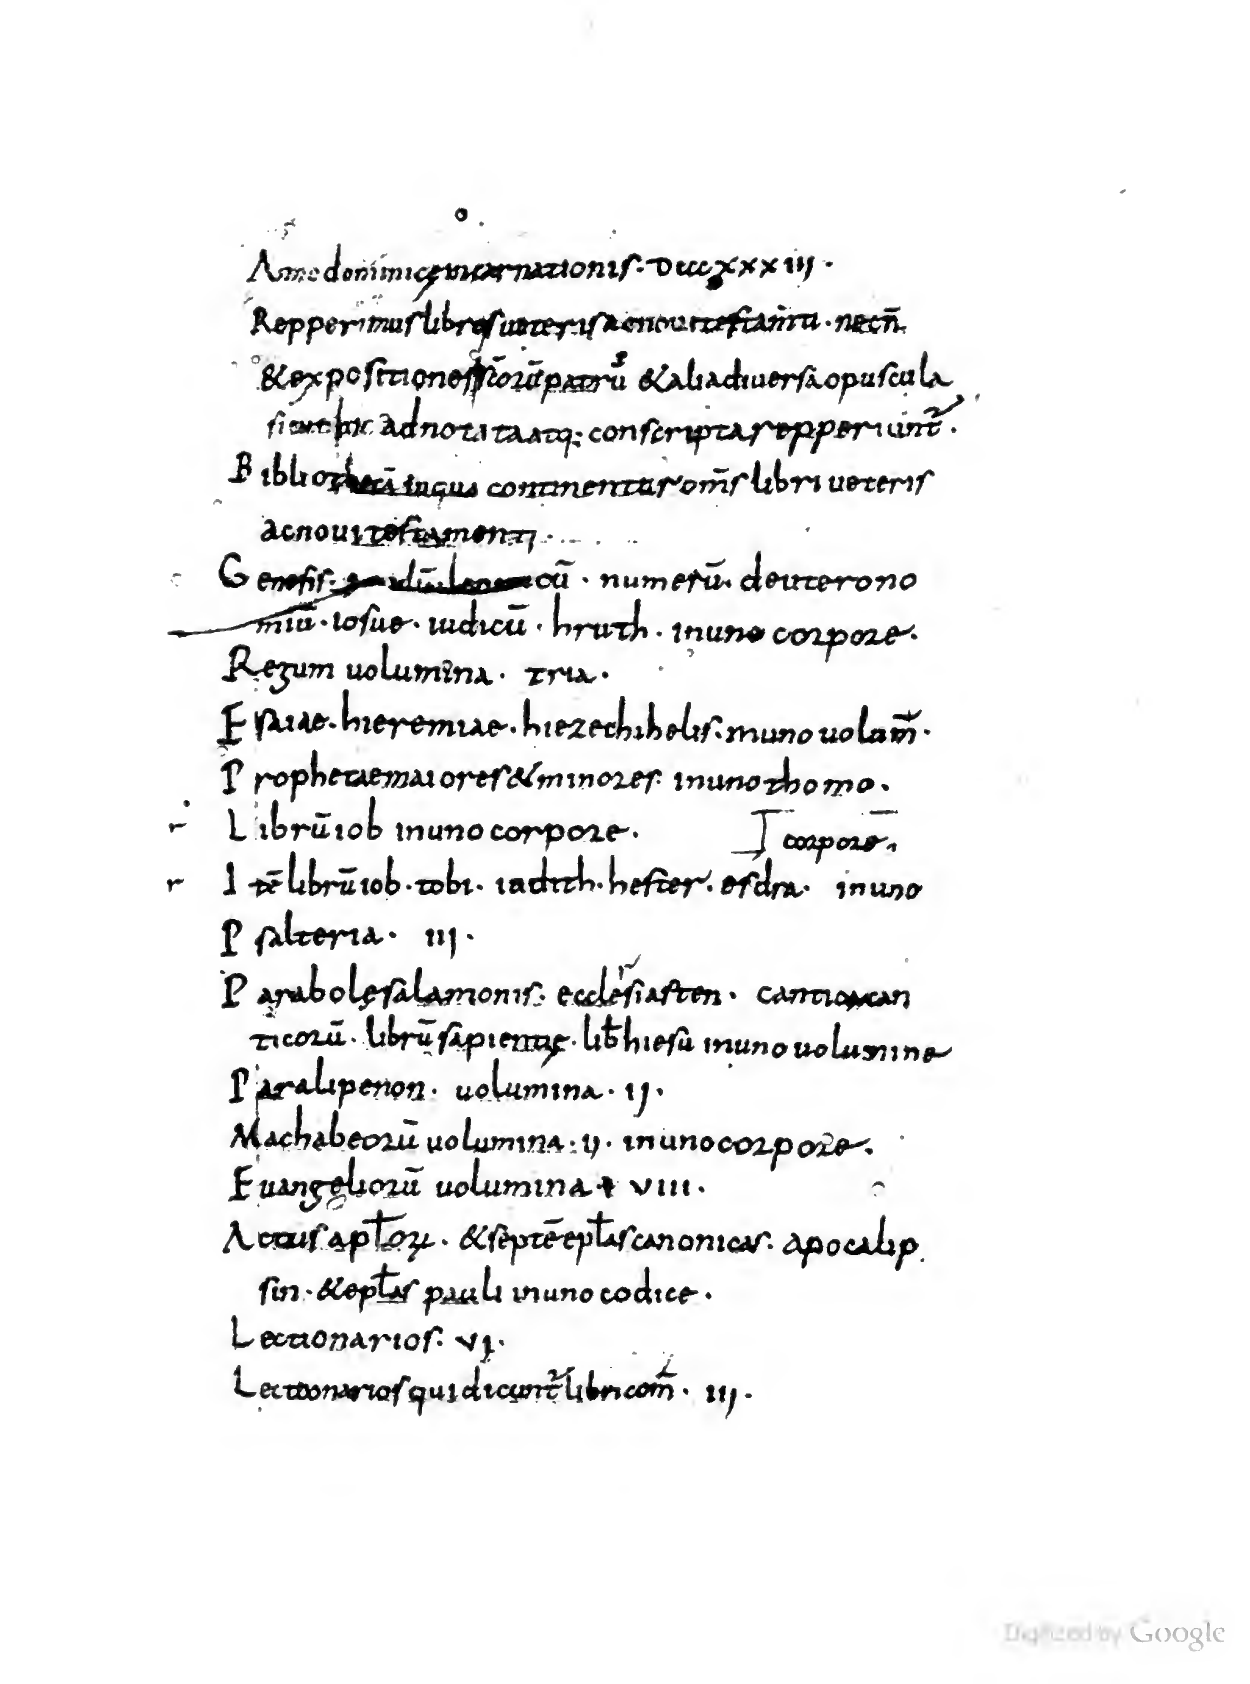 Anno dominicę incarnationis · Dcccxxxiij ·
Repperimus libros ueteris ac noui testam̄ti · necn̄
& expositiones sc̄orū patrū & alia diuersa opuscula
sicut hic adnotata atq; conscripta repperiunt̄ ·
Bibliothecā in qua continentur om̄s libri ueteris
ac noui testamenti ·
Genesis · cū · numerū · deuterono
miū · iosue · iudicū · hruth · in uno corpore ·
Regum uolumina · tria ·
Esaiae · hieremiae · hiezechihelis · in uno uolum̄ ·
Prophetae maiores & minores · in uno thomo ·
r Librū iob in uno corpore ·
corpore ·
r Itē librū iob · tobi · iudith · hester · esdra · in uno
Psalteria · iij ·
Parabolę salamonis · ecclesiasten · cantica can
ticorū · librū sapientię · lib̄ hiesu in uno uolumine
Paralipenon · uolumina · ij ·
Machabeorū uolumina · ij · in uno corpore ·
Euangeliorū uolumina · viii ·
Actus apl̄oꝝ · & septē epl̄as canonicas · apocalip
sin · & epl̄as pauli in uno codice ·
Lectionarios · vj ·
Lectionarios qui dicunt̄ libri com̄ · iij ·
Digitized by Google